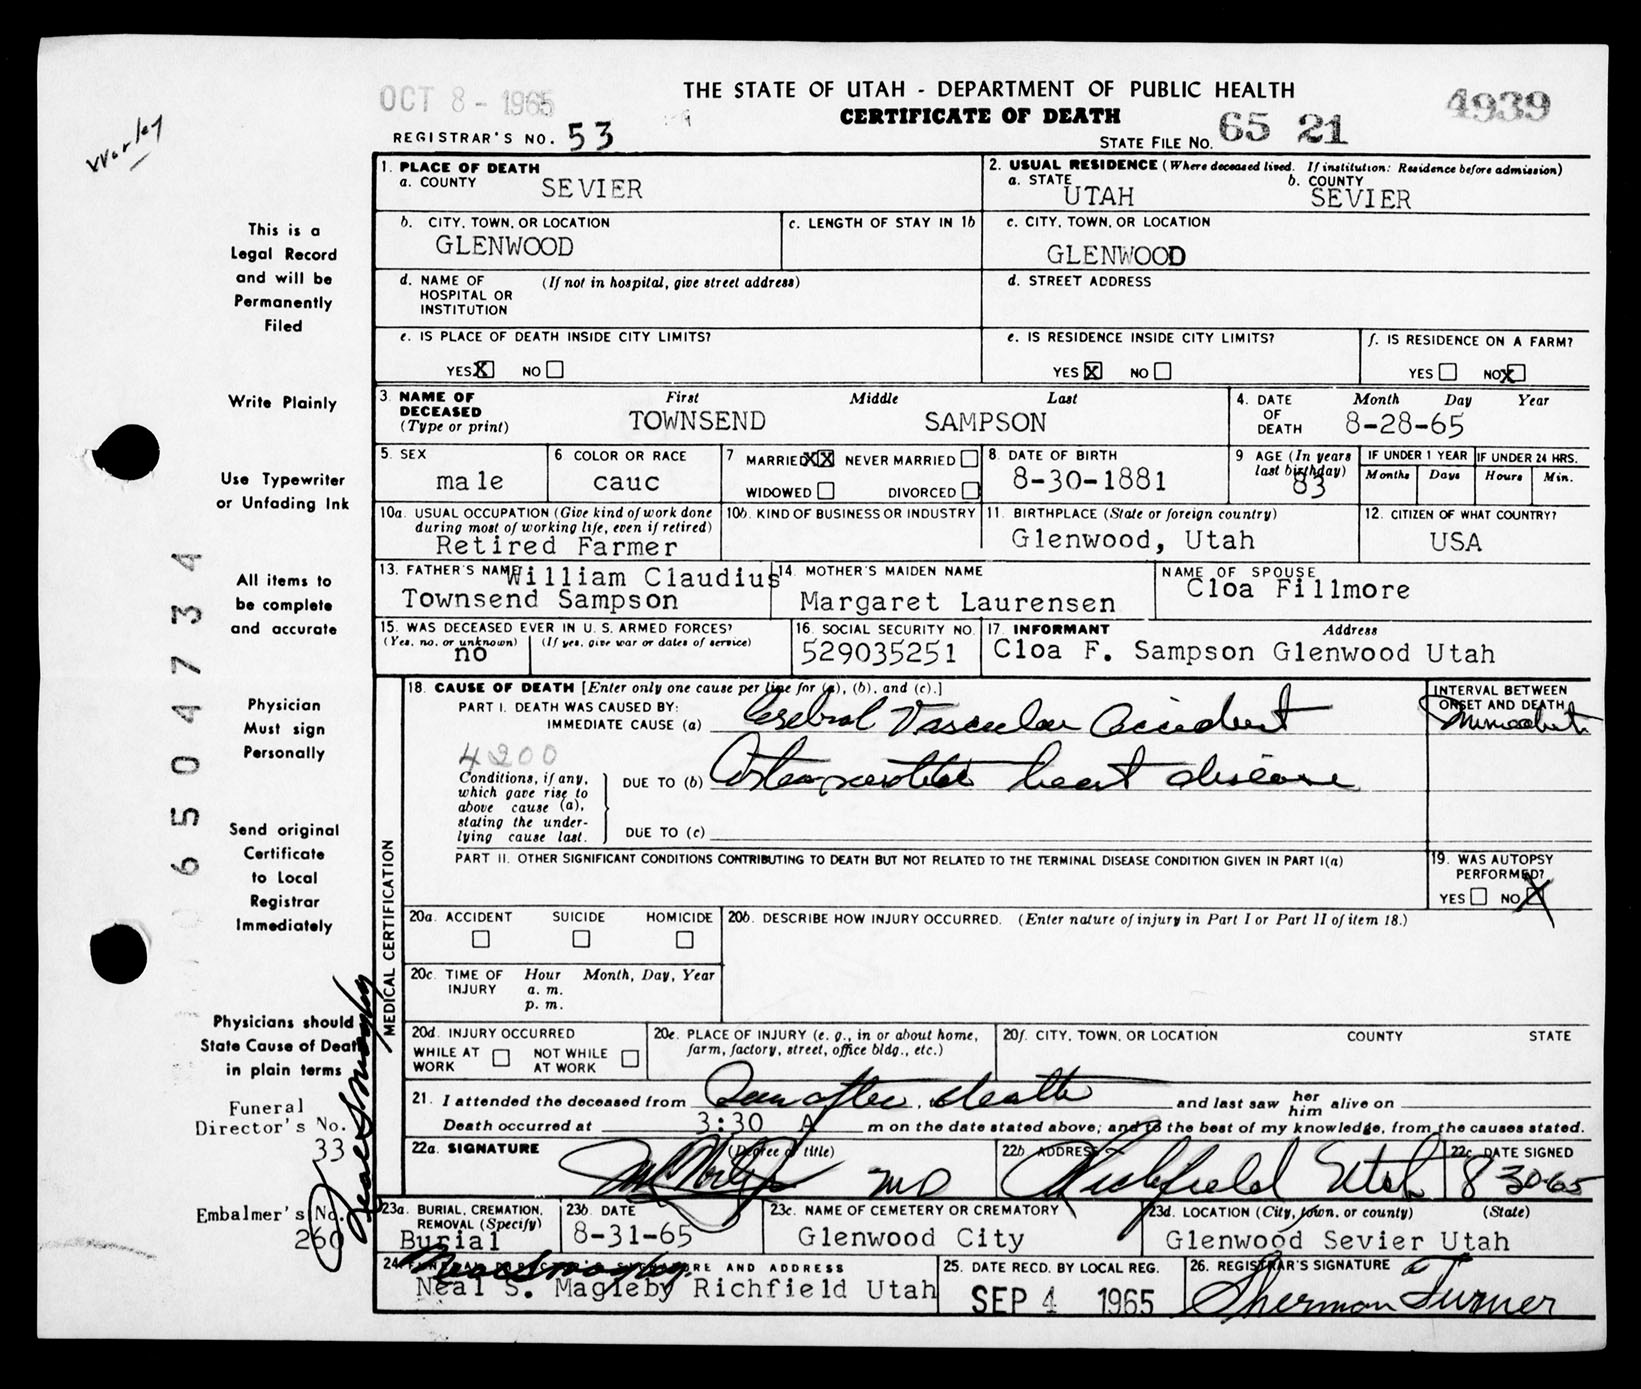 OCT 8 - 1965
THE STATE OF UTAH - DEPARTMENT OF PUBLIC HEALTH
CERTIFICATE OF DEATH
4939
REGISTRAR'S NO. 53
STATE FILE NO. 65 21
Worley
This is a
Legal Record
and will be
Permanently
Filed
Write Plainly
Use Typewriter
or Unfading Ink
All items to
be complete
and accurate
Physician
Must sign
Personally
Send original
Certificate
to Local
Registrar
Immediately
Physicians should
State Cause of Death
in plain terms
Funeral
Director's No.
33
Embalmer's No.
260
Neal S Magleby
6504734
1. PLACE OF DEATH
a. COUNTY SEVIER
2. USUAL RESIDENCE (Where deceased lived. If institution: Residence before admission)
a. STATE UTAH
b. COUNTY SEVIER
b. CITY, TOWN, OR LOCATION
GLENWOOD
c. LENGTH OF STAY IN 1b
c. CITY, TOWN, OR LOCATION
GLENWOOD
d. NAME OF HOSPITAL OR INSTITUTION (If not in hospital, give street address)
d. STREET ADDRESS
e. IS PLACE OF DEATH INSIDE CITY LIMITS?
YES X NO
e. IS RESIDENCE INSIDE CITY LIMITS?
YES X NO
f. IS RESIDENCE ON A FARM?
YES NO X
3. NAME OF DECEASED (Type or print) First Middle Last
TOWNSEND SAMPSON
4. DATE OF DEATH Month Day Year
8-28-65
5. SEX
male
6 COLOR OR RACE
cauc
7 MARRIED XX NEVER MARRIED
WIDOWED DIVORCED
8. DATE OF BIRTH
8-30-1881
9 AGE (In years last birthday)
83
IF UNDER 1 YEAR
Months Days
IF UNDER 24 HRS.
Hours Min.
10a. USUAL OCCUPATION (Give kind of work done during most of working life, even if retired)
Retired Farmer
10b. KIND OF BUSINESS OR INDUSTRY
11. BIRTHPLACE (State or foreign country)
Glenwood, Utah
12. CITIZEN OF WHAT COUNTRY?
USA
13. FATHER'S NAME William Claudius
Townsend Sampson
14. MOTHER'S MAIDEN NAME
Margaret Laurensen
NAME OF SPOUSE
Cloa Fillmore
15. WAS DECEASED EVER IN U. S. ARMED FORCES?
(Yes, no, or unknown) (If yes, give war or dates of service)
no
16. SOCIAL SECURITY NO.
529035251
17. INFORMANT Address
Cloa F. Sampson Glenwood Utah
MEDICAL CERTIFICATION
18. CAUSE OF DEATH [Enter only one cause per line for (a), (b), and (c).]
PART I. DEATH WAS CAUSED BY:
IMMEDIATE CAUSE (a) Cerebral Vascular Accident
INTERVAL BETWEEN ONSET AND DEATH
4200
Conditions, if any, which gave rise to above cause (a), stating the underlying cause last.
DUE TO (b) heart disease
DUE TO (c)
PART II. OTHER SIGNIFICANT CONDITIONS CONTRIBUTING TO DEATH BUT NOT RELATED TO THE TERMINAL DISEASE CONDITION GIVEN IN PART I(a)
19. WAS AUTOPSY PERFORMED?
YES NO X
20a. ACCIDENT SUICIDE HOMICIDE
20b. DESCRIBE HOW INJURY OCCURRED. (Enter nature of injury in Part I or Part II of item 18.)
20c. TIME OF INJURY Hour Month, Day, Year
a. m.
p. m.
20d. INJURY OCCURRED
WHILE AT WORK NOT WHILE AT WORK
20e. PLACE OF INJURY (e. g., in or about home, farm, factory, street, office bldg., etc.)
20f. CITY, TOWN, OR LOCATION COUNTY STATE
21. I attended the deceased from Seen after death and last saw her him alive on
Death occurred at 3:30 A m on the date stated above; and to the best of my knowledge, from the causes stated.
22a. SIGNATURE (Degree or title)
MD
22b ADDRESS
Richfield Utah
22c. DATE SIGNED
8 30-65
23a. BURIAL, CREMATION, REMOVAL (Specify)
Burial
23b DATE
8-31-65
23c. NAME OF CEMETERY OR CREMATORY
Glenwood City
23d. LOCATION (City, town, or county) (State)
Glenwood Sevier Utah
24. FUNERAL DIRECTOR'S SIGNATURE AND ADDRESS
Neal S Magleby
Neal S. Magleby Richfield Utah
25. DATE RECD. BY LOCAL REG.
SEP 4 1965
26. REGISTRAR'S SIGNATURE
Sherman Turner